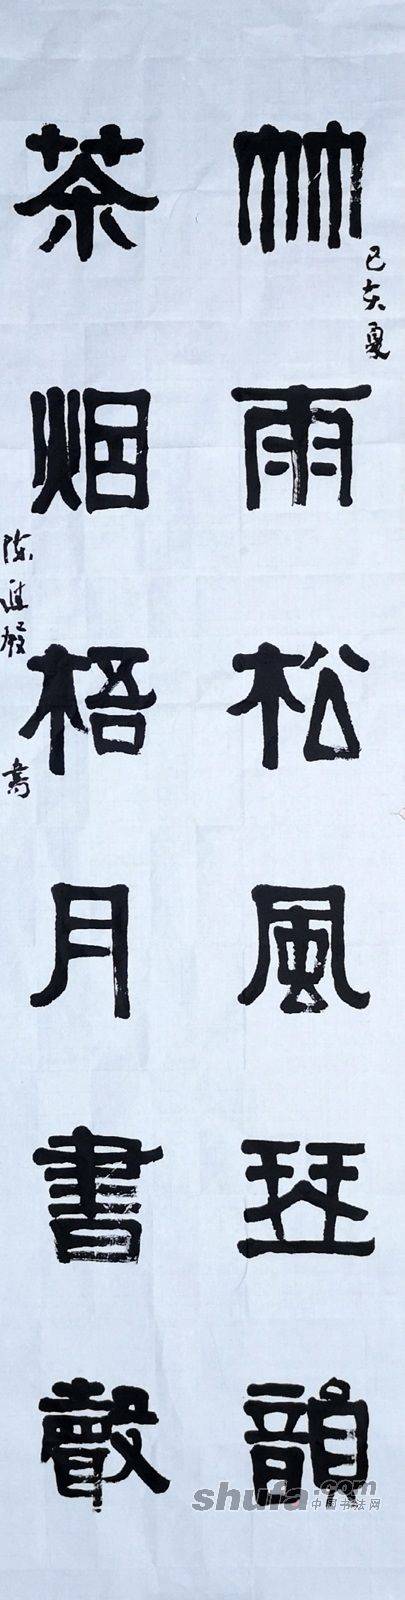 竹雨松風琴韻
己亥夏
茶烟梧月書聲
陈
書
shufa.com
中国书法网